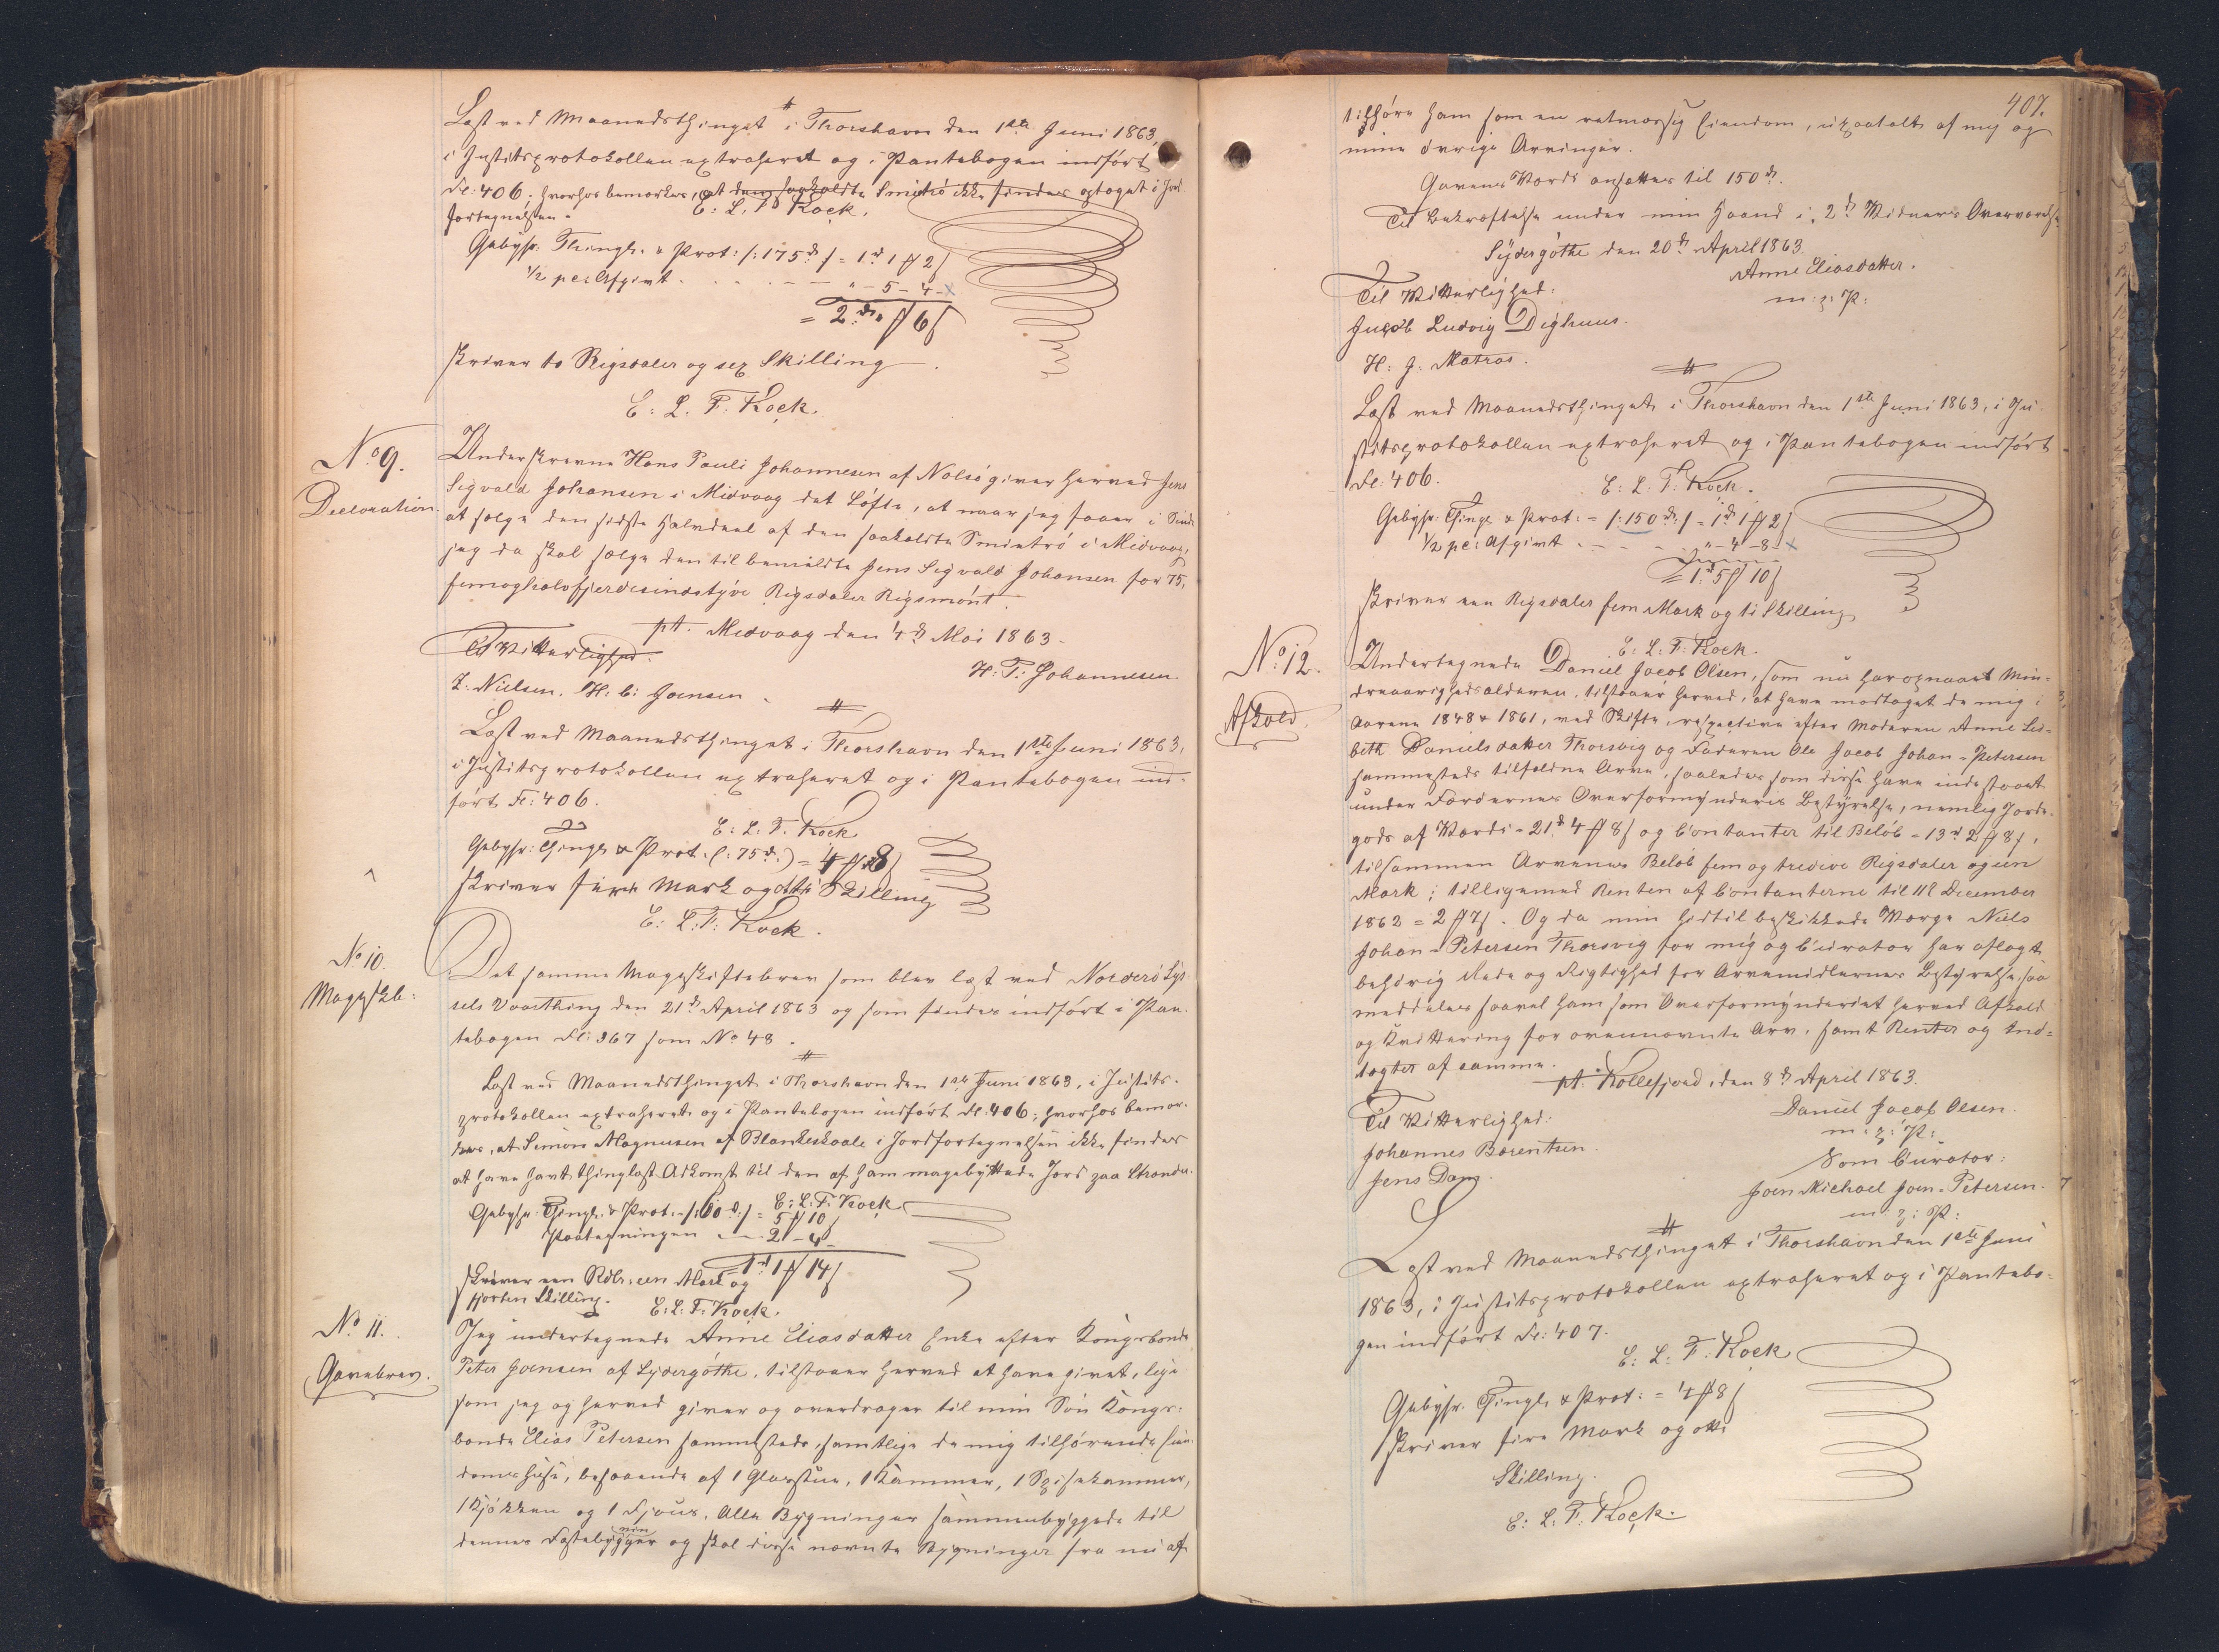 Læst ved Maanedsthinget i Thorshavn den 1ste Juni 1863,
i Justitsprotokollen extraheret og i Pantebogen indført
Fl: 406; hvorhos bemærkes, at den saakaldte Smiatró ikke findes optaget i Jord-
fortegnelsen.
E: L: F: Kock.
Gebyhr. Thingl. & Prot: /:175 rd/ = 1 rd 1 ₻ 2 ſ
½ pc: Afgivt . . . . . „ - 5 - 4 -
= 2 rd „ ₻ 6 ſ
skriver to Rigsdaler og sex Skilling.
E: L: F: Kock.
No 9.
Declaration.
Underskrevne Hans Pauli Johannesen af Nolsö giver herved Jens
Sigvald Johansen i Midvaag det Löfte, at naar jeg faaer i Sinde
at sælge den sidste Halvdeel af den saakaldte Smiatró i Midvaag,
jeg da skal sælge den til bemeldte Jens Sigvald Johansen for 75,
femoghalvfjerdesindstyve Rigsdaler Rigsmönt.
pt. Midvaag den 4de Mai 1863.
Til Vitterlighed:
H: P: Johannesen.
Z. Nielsen. H: C: Joensen.
Læst ved Maanedsthinget i Thorshavn den 1ste Juni 1863,
i Justitsprotokollen extraheret og i Pantebogen ind-
ført Fl: 406.
E: L: F. Kock
Gebyhr: Thingl. & Prot. (:75 rd:) = 4 ₻ 8 ſ
skriver fire Mark og otte Skilling
E: L: F: Kock.
No 10.
Mageskb:
Det samme Mageskiftebrev som blev læst ved Norderö Sys-
sels Vaarthing den 21de April 1863 og som findes indført i Pan-
tebogen Fl: 367 som No 48.
Læst ved Maanedsthinget i Thorshavn den 1ste Juni 1863, i Justits-
protokollen extraheret og i Pantebogen indført Fl. 406; hvorhos bemær-
kes, at Simon Magnusen af Blankeskaale i Jordfortegnelsen ikke findes
at have havt thinglæst Adkomst til den af ham magebyttede Jord paa Strande.
E: L: F: Kock
Gebyhr. Thingl. & Prot. /:60 rd:/ = 5 ₻ 10
Paategningen - - 2 - 4
1 rd 1 ₻ 14 ſ
skriver een Rdlr: een Mark og
fjorten Skilling.
E: L: F: Kock.
No 11.
Gavebrev.
Jeg undertegnede Anne Eliasdatter Enke efter Kongsbonde
Peter Joensen af Sydergöthe, tilstaaer herved at have givet, lige
som jeg og herved giver og overdrager til min Sön Kongs-
bonde Elias Petersen sammesteds, samtlige de mig tilhörende Eien-
domshuse, bestaaende af 1 Glarstue, 1 Kammer, 1 Spisekammer,
1 Kjökken og 1 Fjøus. Alle Bygninger sammenbyggede til
dennes Fæstebygger og skal disse nævnte Bygninger fra nu af
407.
tilhöre ham som en retmæssig Eiendom, upaatalt af mig og
mine övrige Arvinger.
Gavens Værdi ansættes til 150 rd.
Til Bekræftelse under min Haand i 2de Vidners Overværelse.
Sydergöthe den 20de April 1863.
Anne Eliasdatter.
m: p: P:
Til Vitterlighed:
Jacob Ludvig Dighuus.
H: J: Matras.
Læst ved Maanedsthinget i Thorshavn den 1ste Juni 1863, i Ju-
stitsprotokollen extraheret og i Pantebogen indført
Fl: 406.
E: L: F: Kock.
Gebyhr: Thingl. & Prot: = /:150 rd:/ = 1 rd 1 ₻ 2 ſ
½ pc: Afgivt . - - - „ - 4 - 8 -
= 1 rd 5 ₻ 10 ſ
skriver een Rigsdaler fem Mark og ti Skilling
E: L: F: Kock.
No: 12.
Afkald.
Undertegnede Daniel Jacob Olsen, som nu har opnaaet Min-
dreaarighedsalderen, tilstaaer herved, at have modtaget de mig i
Aarene 1848 & 1861, ved Skifte, respective efter Moderen Anne Lis-
beth Danielsdatter Thorsvig og Faderen Ole Jacob Johan-Petersen
sammesteds tilfaldne Arve, saaledes som disse have indestaaet
under Færöernes Overformynderies Bestyrelse, nemlig Jorde-
gods af Værdi = 21 rd 4 ₻ 8 ſ og Contanter til Belöb = 13 rd 2 ₻ 8 ſ,
tilsammen Arvenes Belöb fem og tredive Rigsdaler og een
Mark; tilligemed Renten af Contanterne til 11te December
1862 = 2 ₻ 7 ſ. Og da min hidtil beskikkede Værge Niels
Johan-Petersen Thorsvig for mig og Curator har aflagt
behörig Rede og Rigtighed for Arvemidlernes Bestyrelse, saa
meddeles saavel ham som Overformynderiet herved Afkald
og Kvittering for ovennævnte Arv, samt Renter og Ind-
tægter af samme.
pt. Kollefjord, den 8de April 1863.
Til Vitterlighed:
Daniel Jacob Olsen.
m: p: P:
Johannes Bærentsen.
Jens Dam.
Som Curator:
Joen Michael Joen-Petersen.
m: p: P:
Læst ved Maanedsthinget i Thorshavn den 1ste Juni
1863, i Justitsprotokollen extraheret og i Pantebo-
gen indført Fl: 407.
E: L: F: Kock
Gebyhr. Thingl. & Prot: = 4 ₻ 8 ſ
skriver fire Mark og otte
Skilling.
E: L: F: Kock.